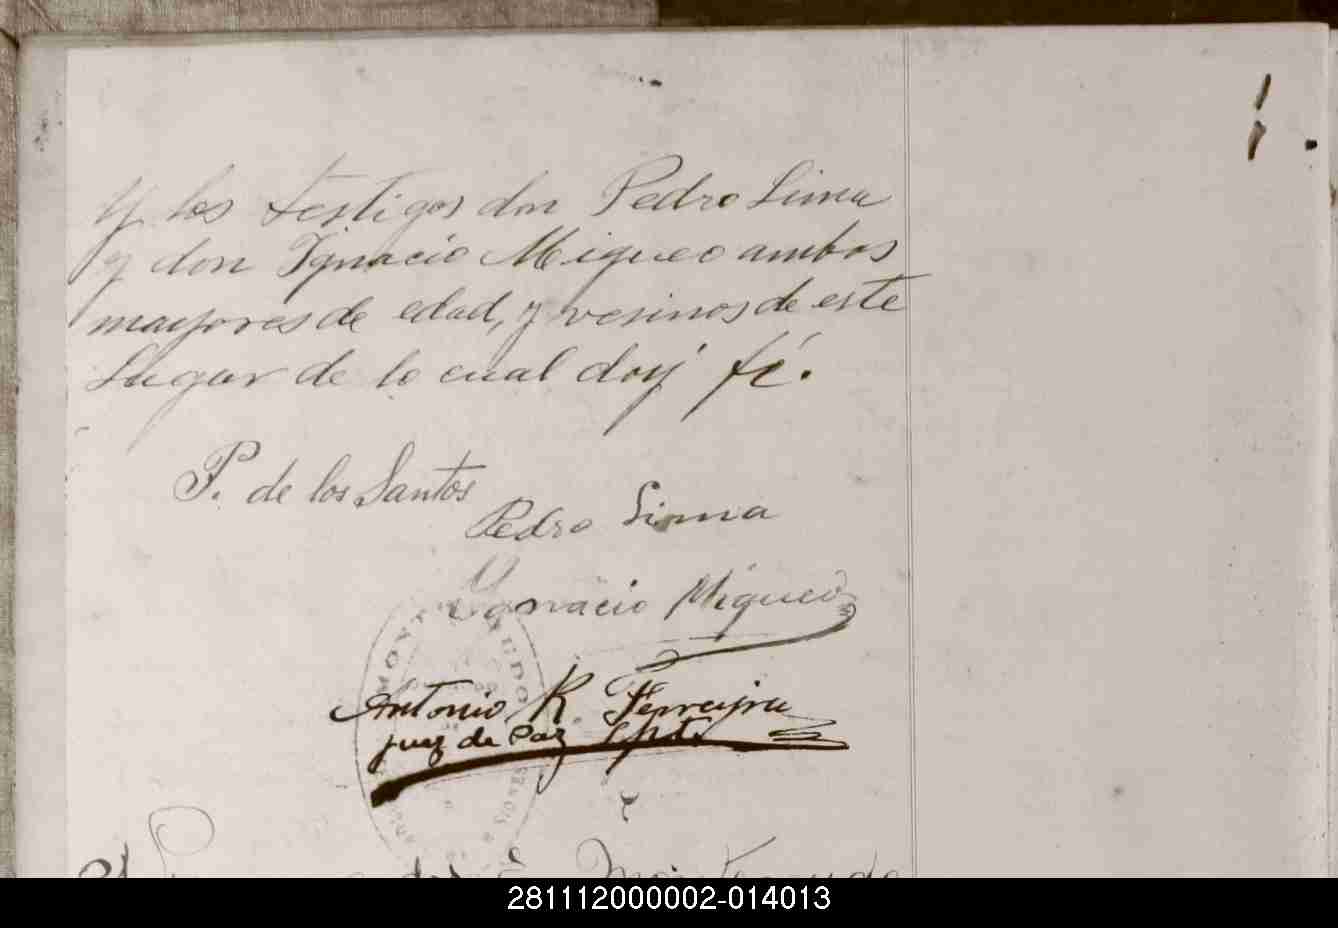 y los testigos don Pedro Lima
y don Ignacio Migueo ambos
mayores de edad, y vesinos de este
Lugar de lo cual doy fé.
P. de los Santos
Pedro Lima
Ygnacio Migueo
Antonio R. Ferreyra
juez de Paz Spte
281112000002-014013